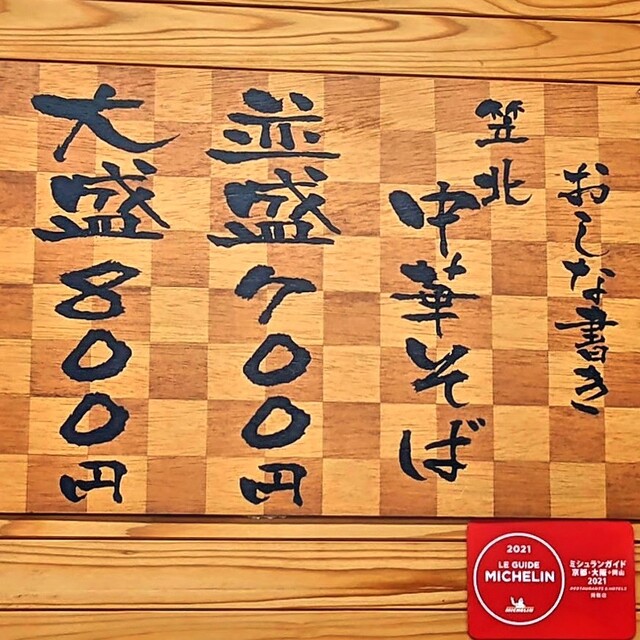 おしな書き
笠北
中華そば
並盛700円
大盛800円
2021
LE GUIDE
MICHELIN
ミシュランガイド
京都・大阪+岡山
2021
RESTAURANTS & HOTELS